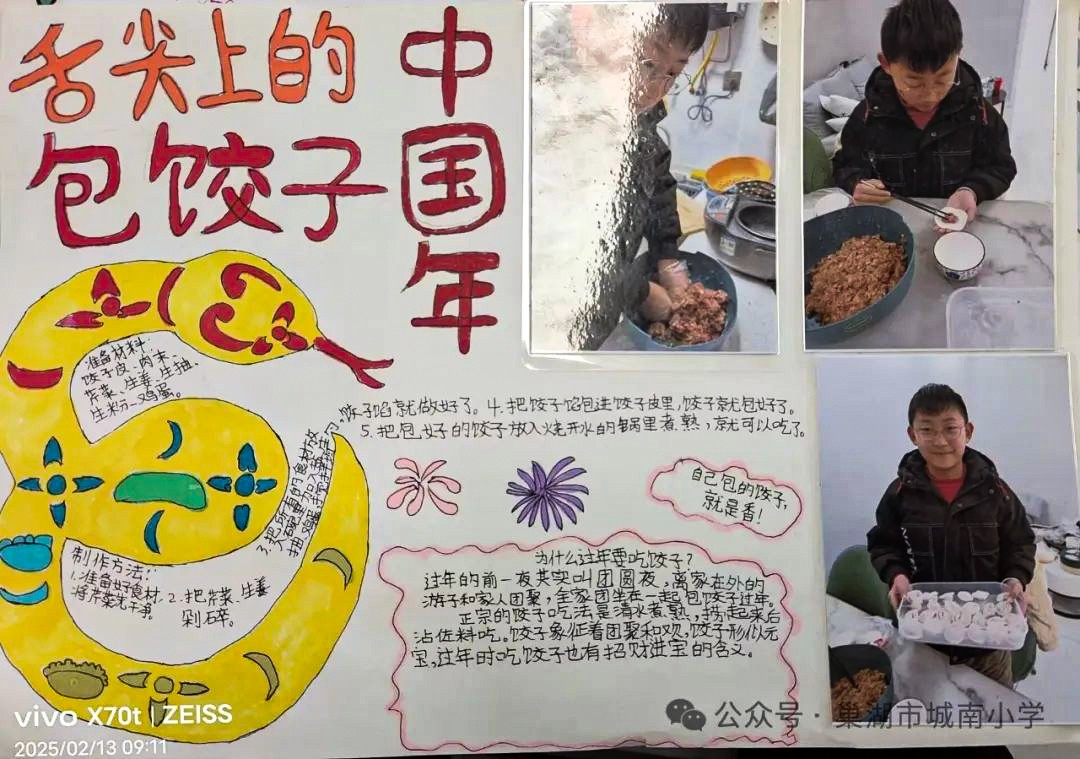 舌尖上的
中国年
包饺子
准备材料：
饺子皮、肉末、
芹菜、生姜、生抽、
生粉、鸡蛋。
制作方法：
1.准备好食材，
将芹菜洗干净。
2.把芹菜、生姜
剁碎。
3.把所有的食材放
饺子馅就做好了。4.把饺子馅包进饺子皮里，饺子就包好了。
5.把包好的饺子放入烧开水的锅里煮熟，就可以吃了。
自己包的饺子，
就是香！
为什么过年要吃饺子？
过年的前一夜其实叫团圆夜，离家在外的
游子和家人团聚，全家团坐在一起包饺子过年。
正宗的饺子吃法是清水煮熟，捞起来后
沾佐料吃。饺子象征着团聚和欢，饺子形似元
宝，过年时吃饺子也有招财进宝的含义。
vivo X70t | ZEISS
2025/02/13 09:11
公众号·巢湖市城南小学